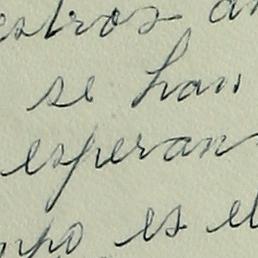 estros a
se han
esperan
mpo es el